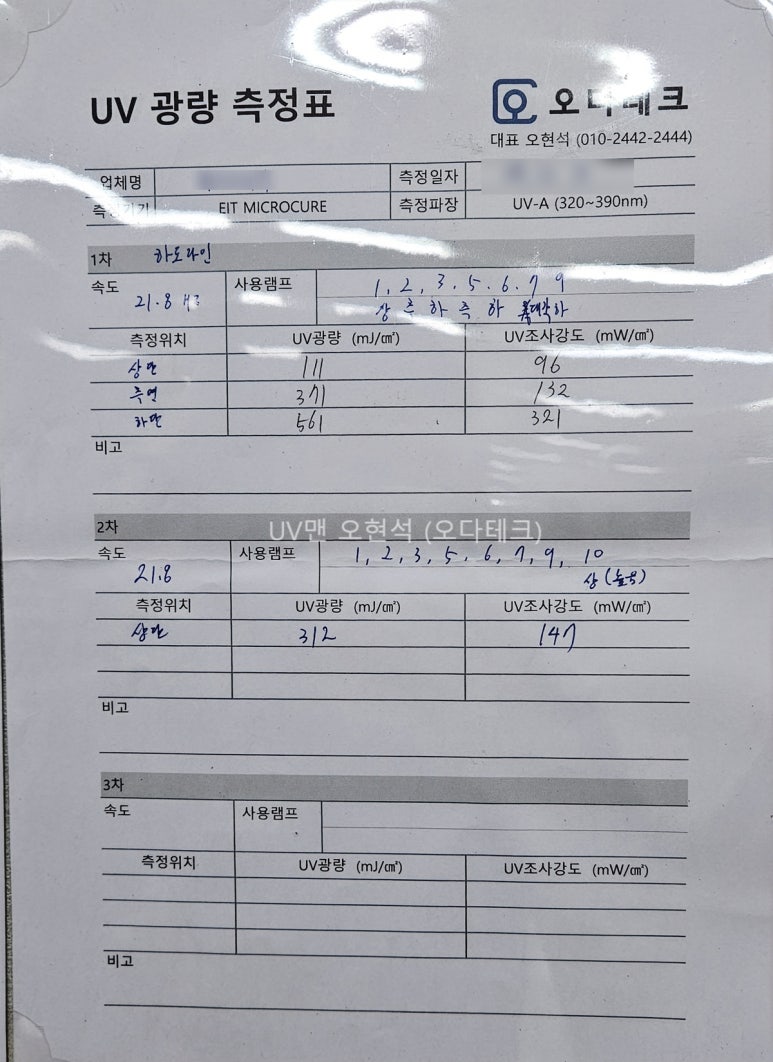 UV 광량 측정표
오다테크
대표 오현석 (010-2442-2444)
업체명 측정일자
측정기기 EIT MICROCURE 측정파장 UV-A (320~390nm)
1차 하도라인
속도 21.8 Hz 사용램프 1, 2, 3, 5, 6, 7 9
상 측 하 측 하 대각하
측정위치 UV광량 (mJ/㎠) UV조사강도 (mW/㎠)
상면 111 96
측면 371 132
하면 561 321
비고
UV맨 오현석 (오다테크)
2차
속도 21.8 사용램프 1, 2, 3, 5, 6, 7, 9, 10
상
측정위치 UV광량 (mJ/㎠) UV조사강도 (mW/㎠)
상면 312 147
비고
3차
속도 사용램프
측정위치 UV광량 (mJ/㎠) UV조사강도 (mW/㎠)
비고